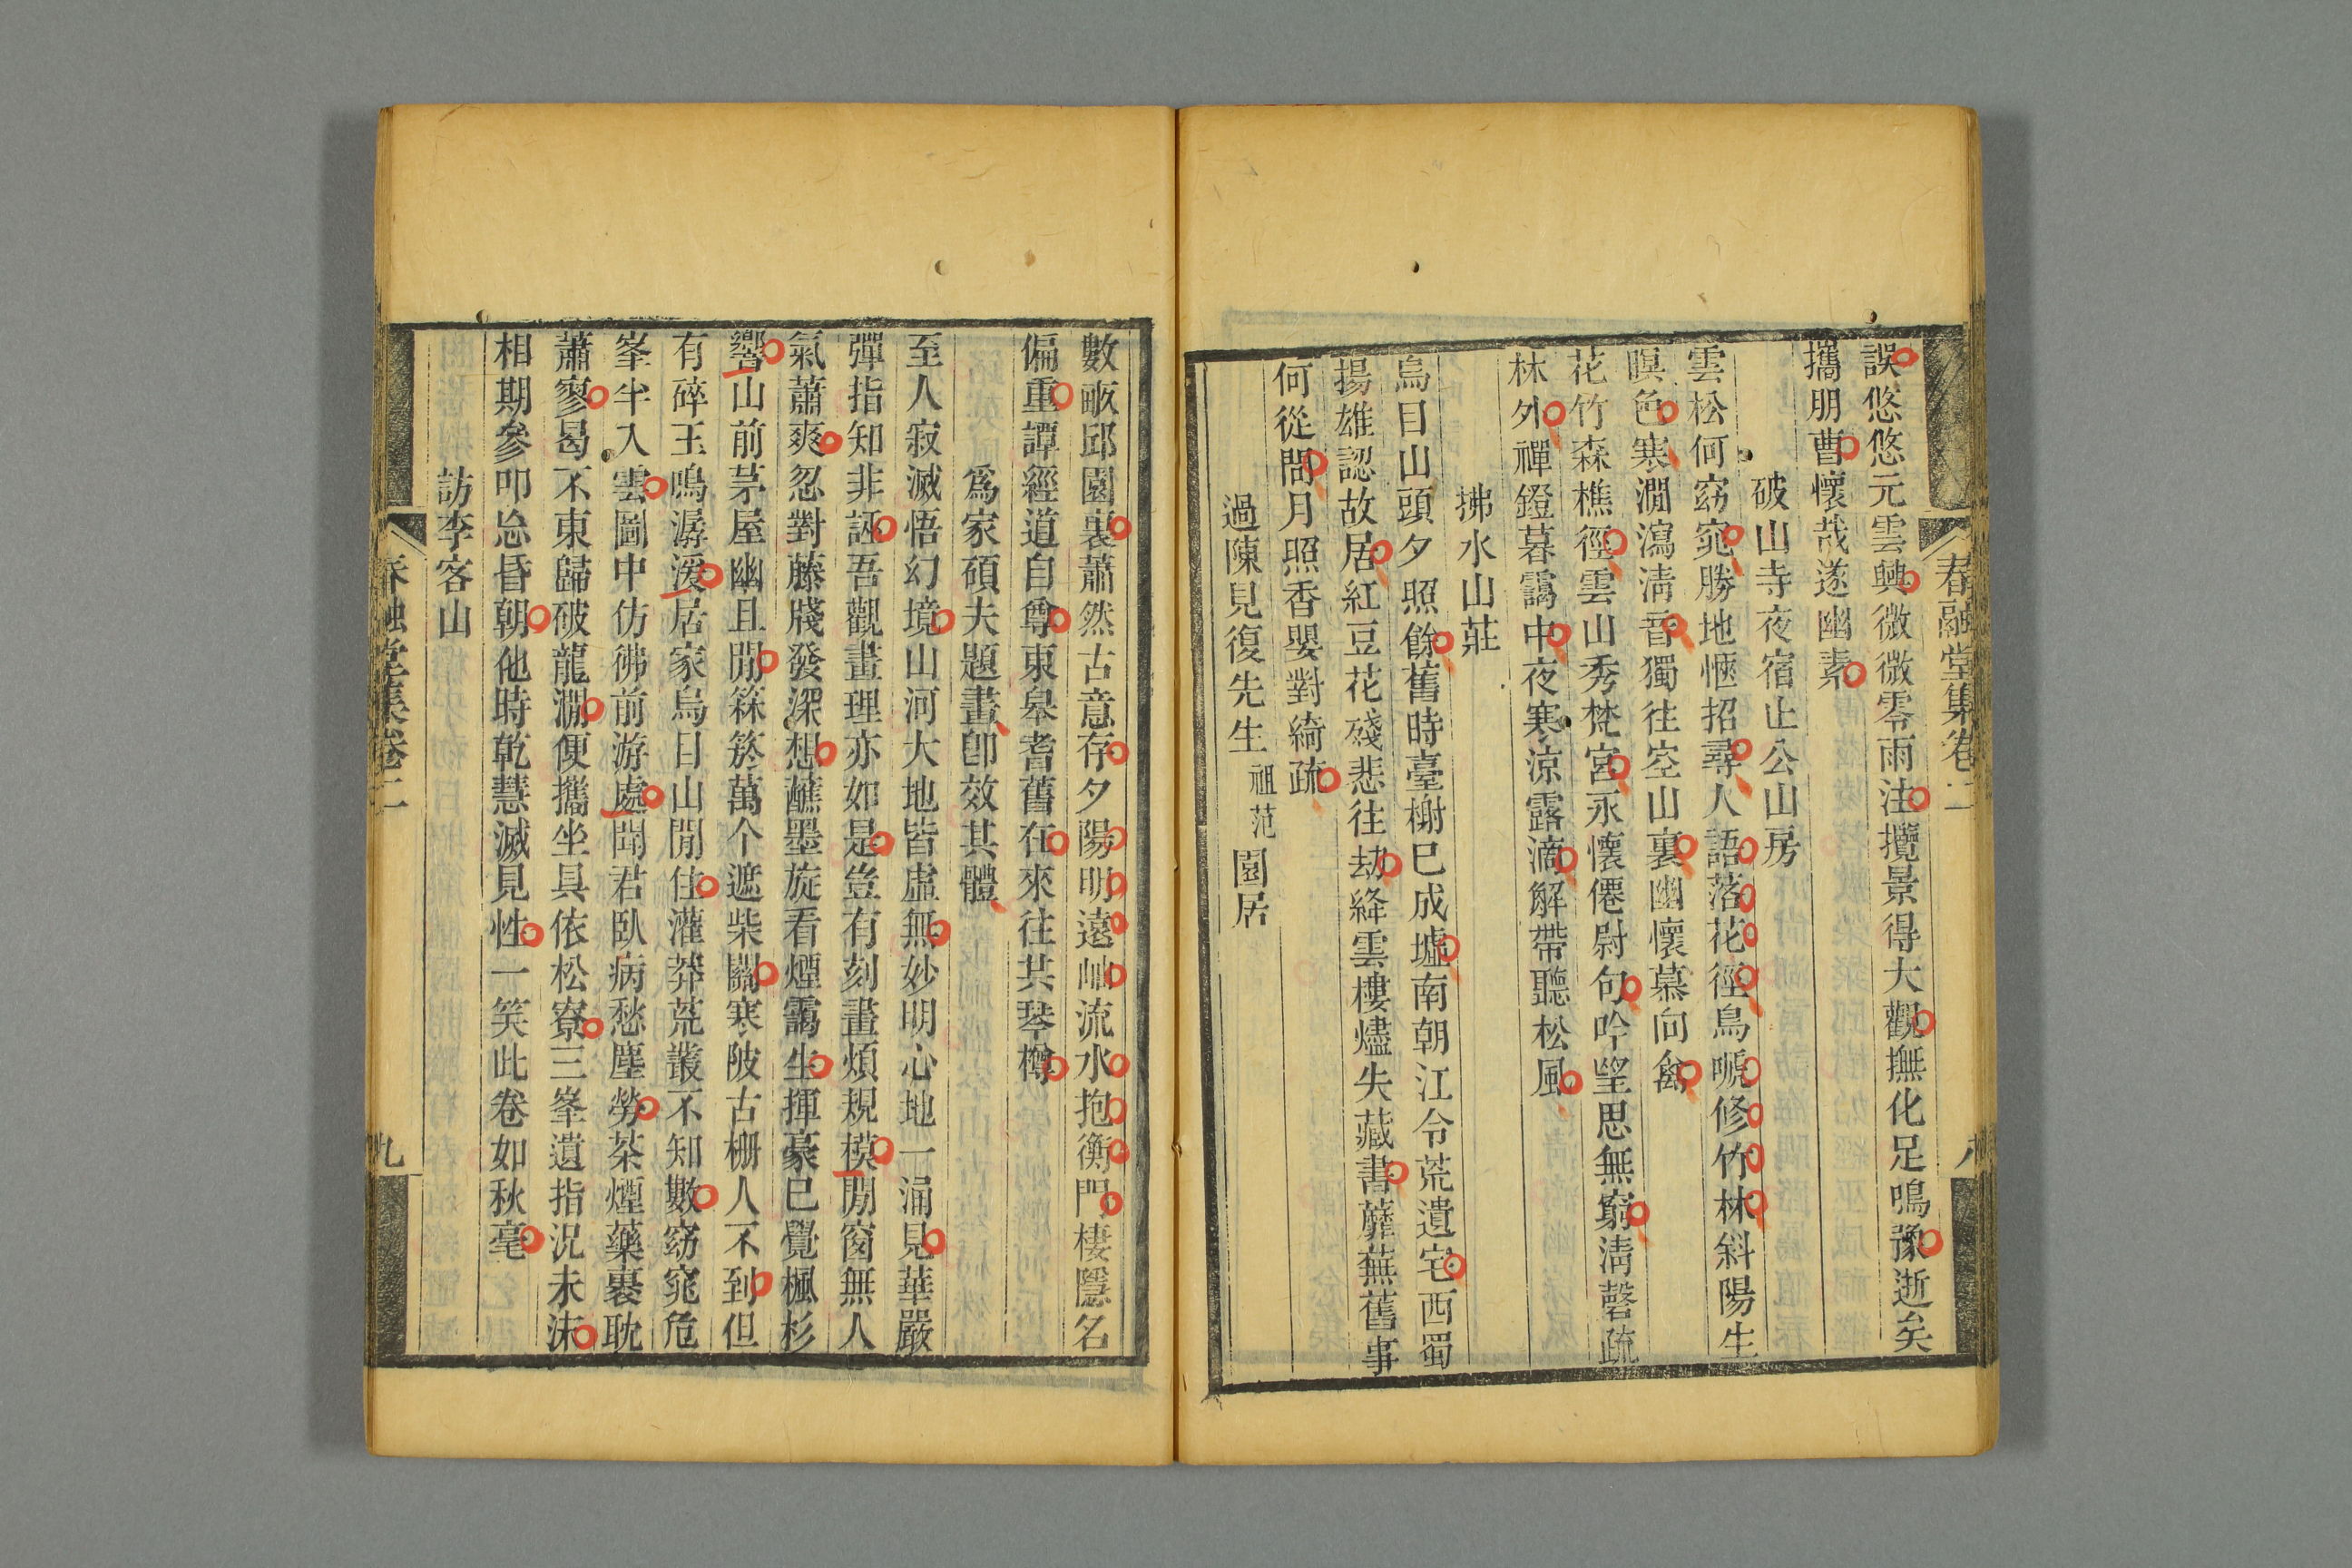 春融堂集卷二
八
誤悠悠元雲興微微零雨注攬景得大觀撫化足鳴豫逝矣
攜朋曹懷哉遂幽素
破山寺夜宿止公山房
雲松何窈窕勝地愜招尋人語落花徑鳥嗁修竹林斜陽生
暝色寒澗瀉淸音獨往空山裏幽懷慕向禽
花竹森樵徑雲山秀梵宮永懷僊尉句吟望思無窮淸磬疏
林外禪鐙暮靄中夜寒涼露滴解帶聽松風
拂水山莊
烏目山頭夕照餘舊時臺榭已成墟南朝江令荒遺宅西蜀
揚雄認故居紅豆花殘悲往劫絳雲樓燼失藏書蘼蕪舊事
何從問月照香嬰對綺疏
過陳見復先生祖范園居
數畞邱園裏蕭然古意存夕陽明遠岫流水抱衡門棲隱名
偏重譚經道自尊東皋耆舊在來往共琴樽
爲家碩夫題畫卽效其體
至人寂滅悟幻境山河大地皆虛無妙明心地一涌見華嚴
彈指知非誣吾觀畫理亦如是豈有刻畫煩規橅閒窗無人
氣蕭爽忽對藤牋發深想蘸墨旋看煙靄生揮豪已覺楓杉
響山前茅屋幽且閒箖箊萬个遮柴關寒陂古栅人不到但
有碎玉鳴潺湲居家烏目山閒住灌莽荒叢不知數窈窕危
峯半入雲圖中仿彿前游處聞君臥病愁塵勞茶煙藥裹耽
蕭寥曷不東歸破龍澗便攜坐具依松寮三峯遺指況未沫
相期參叩怱昏朝他時乾慧滅見性一笑此卷如秋毫
訪李客山
春融堂集卷二
九